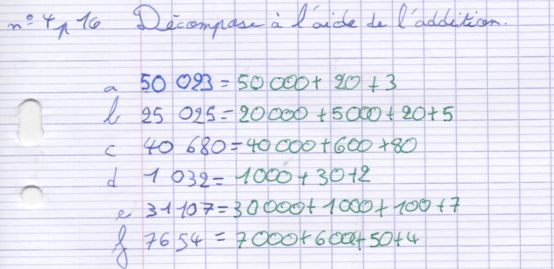 n° 4 p 16 Décompose à l'aide de l'addition.
a 50 023 = 50 000 + 20 + 3
b 25 025 = 20 000 + 5000 + 20 + 5
c 40 680 = 40 000 + 600 + 80
d 1 032 = 1000 + 30 + 2
e 31 107 = 30 000 + 1000 + 100 + 7
f 7654 = 7000 + 600 + 50 + 4